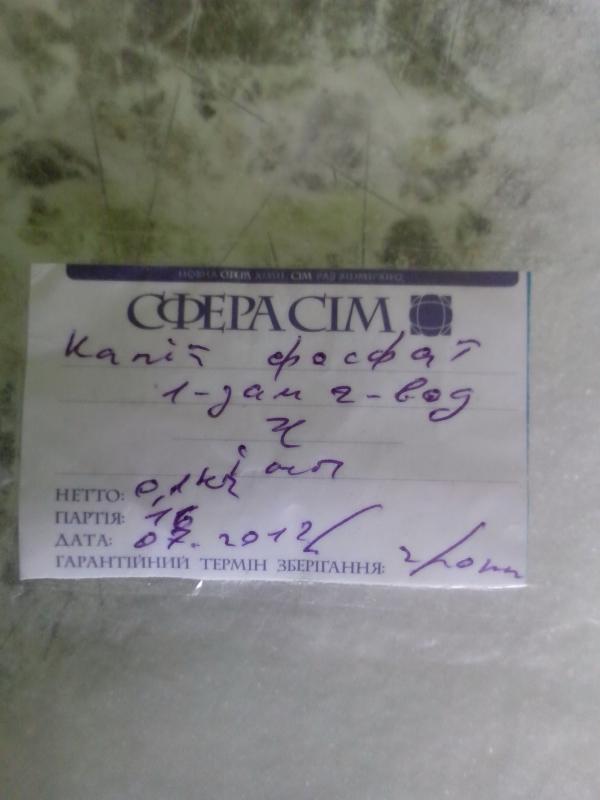 ПОВНА СФЕРА ХІМІЇ. СІМ РАЗ ВІДМІРЯНО.
СФЕРА СІМ
Калій фосфат
1-зам 2-вод
Ч
НЕТТО: 0,1кг
ПАРТІЯ: 16
ДАТА: 07. 2012
ГАРАНТІЙНИЙ ТЕРМІН ЗБЕРІГАННЯ: 2/роки